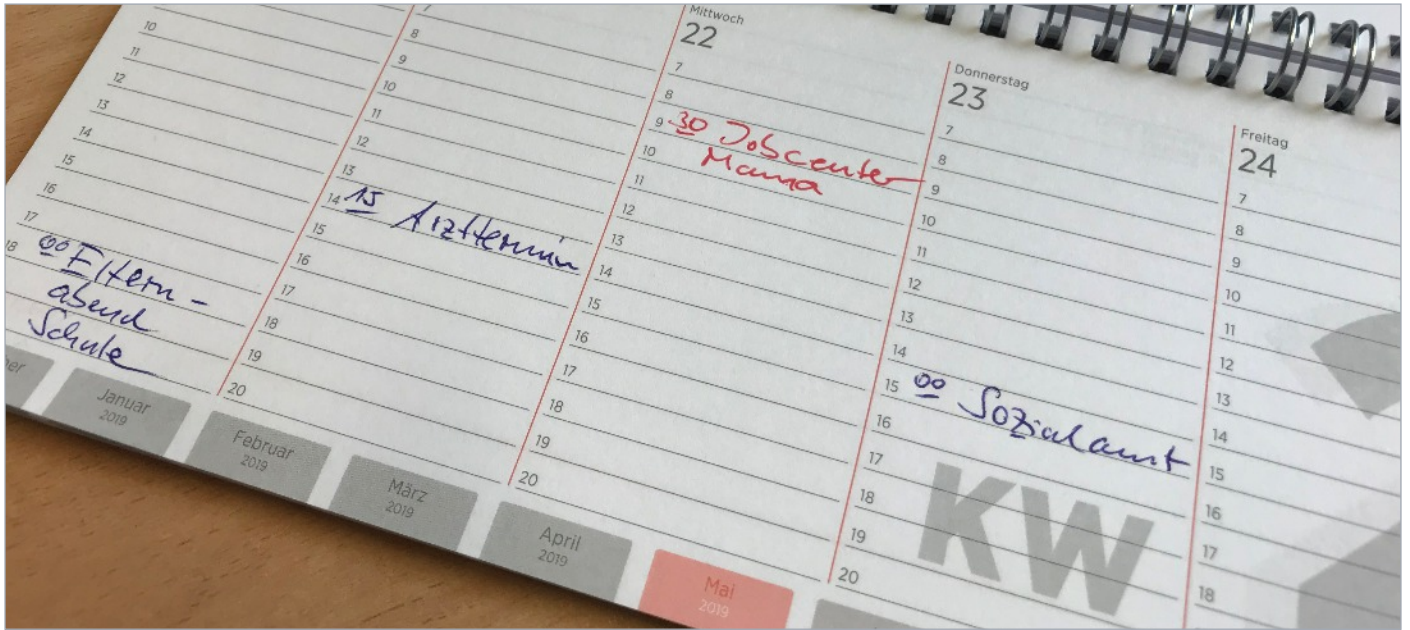 10
11
12
13
14
15
16
17
18 00 Eltern-
abend
Schule
7
8
9
10
11
12
13
14 15 Arzttermin
15
16
17
18
19
20
Mittwoch
22
7
8
9 30 Jobcenter
10 Mama
11
12
13
14
15
16
17
18
19
20
Donnerstag
23
7
8
9
10
11
12
13
14
15 00 Sozialamt
16
17
18
19
20
KW
Freitag
24
7
8
9
10
11
12
13
14
15
16
17
18
Januar
2019
Februar
2019
März
2019
April
2019
Mai
2019